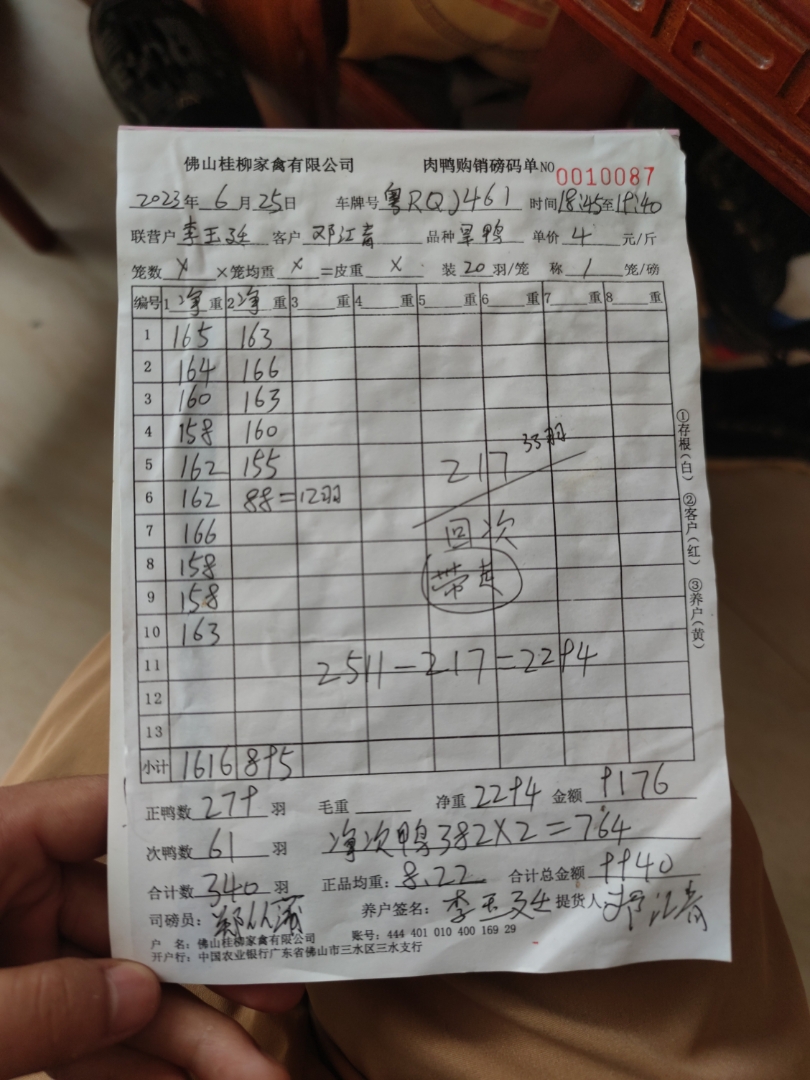 佛山桂柳家禽有限公司 肉鸭购销磅码单 NO 0010087
2023年 6月25日 车牌号 粤RQJ461 时间18:45至19:40
联营户 李玉廷 客户 邓江青 品种 旱鸭 单价 4 元/斤
笼数 x ×笼均重 x =皮重 x 装20羽/笼 称 1 笼/磅
编号 1净重 2净重 3 重 4 重 5 重 6 重 7 重 8 重
1 165 163
2 164 166
3 160 163
4 158 160
5 162 155
6 162 88=12羽
7 166
8 158
9 158
10 163
11
12
13
217 33羽
回次
带走
2511-217=2294
小计 1616 895
正鸭数 279 羽 毛重 净重 2294 金额 9176
次鸭数 61 羽 净次鸭382X2=764
合计数 340 羽 正品均重: 8.22 合计总金额 9940
司磅员: 养户签名: 李玉廷 提货人
户 名: 佛山桂柳家禽有限公司 账号: 444 401 010 400 169 29
开户行: 中国农业银行广东省佛山市三水区三水支行
①存根(白) ②客户(红) ③养户(黄)